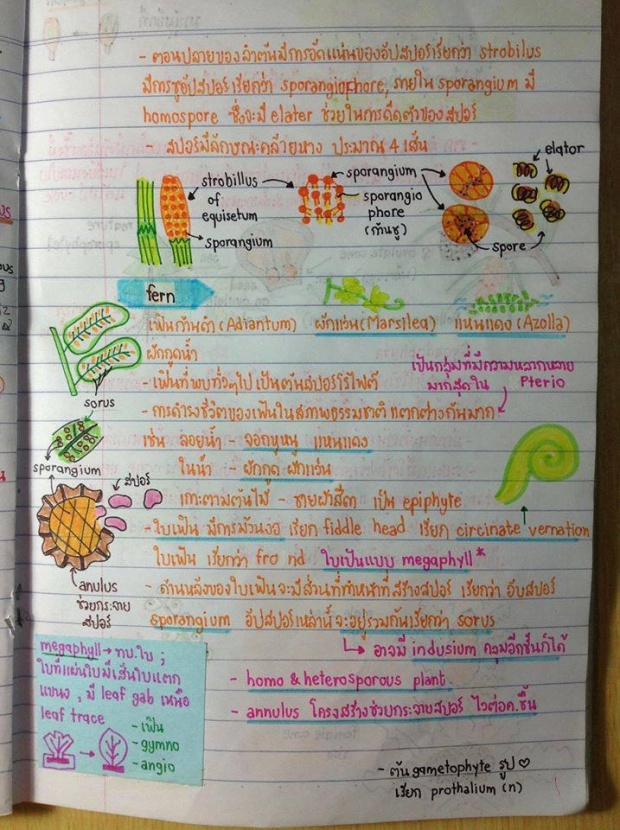 - ตอนปลายของลำต้นมีการอัดแน่นของอับสปอร์เรียกว่า strobilus
มีการชูอับสปอร์เรียกว่า sporangiophore, ภายใน sporangium มี
homospore ซึ่งจะมี elater ช่วยในการดีดตัวของสปอร์
- สปอร์มีลักษณะคล้ายหาง ประมาณ 4 เส้น
strobillus
of
equisetum
sporangium
sporangium
sporangio
phore
(ก้านชู)
elator
spore
fern
เฟินก้านดำ (Adiantum) ผักแว่น (Marsilea) แหนแดง (Azolla)
ผักกูดน้ำ
- เฟินที่พบทั่วๆไป เป็นต้นสปอร์โรไฟต์
เป็นกลุ่มที่มีความหลากหลาย
มากสุดใน Pterio
- การดำรงชีวิตของเฟินในสภาพธรรมชาติ แตกต่างกันมาก
เช่น ลอยน้ำ - จอกหูหนู แหนแดง
ในน้ำ - ผักกูด ผักแว่น
เกาะตามต้นไม้ - ชายผ้าสีดา เป็น epiphyte
- ใบเฟิน มีการม้วนงอ เรียก fiddle head เรียก circinate vernation
ใบเฟิน เรียกว่า frond ใบเป็นแบบ megaphyll*
- ด้านหลังของใบเฟินจะมีส่วนที่ทำหน้าที่สร้างสปอร์ เรียกว่า อับสปอร์
sporangium อับสปอร์เหล่านี้จะอยู่รวมกันเรียกว่า sorus
อาจมี indusium คลุมอีกชั้นก็ได้
- homo & heterosporous plant
- annulus โครงสร้างช่วยกระจายสปอร์ ไวต่อค.ชื้น
- ต้น gametophyte รูป ♡
เรียก prothalium (n)
sorus
sporangium
สปอร์
anulus
ช่วยกระจาย
สปอร์
megaphyll → ทบ.ใบ ;
ใบที่แผ่นใบมีเส้นใบแตก
แขนง , มี leaf gab เหนือ
leaf trace
- เฟิน
- gymno
- angio